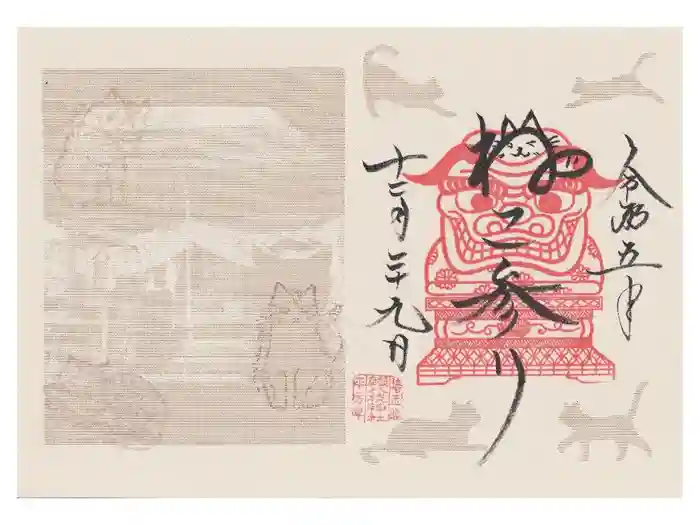 令和五年
ねこ参り
十二月二十九日